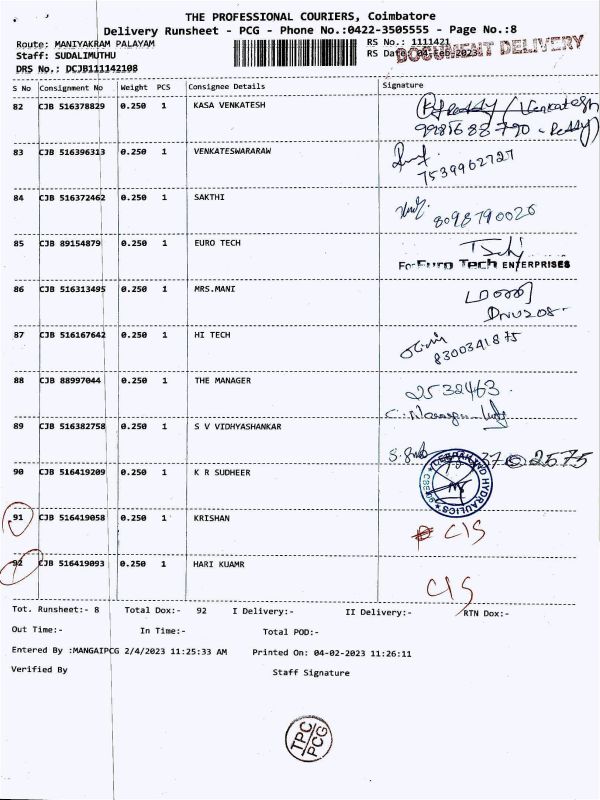 THE PROFESSIONAL COURIERS, Coimbatore
Delivery Runsheet - PCG - Phone No.:0422-3505555 - Page No.:8
Route: MANIYAKRAM PALAYAM RS No.: 1111421
Staff: SUDALIMUTHU RS Date: 04-Feb-2023
DOCUMENT DELIVERY
DRS No.: DCJB111142108
S No Consignment No Weight PCS Consignee Details Signature
82 CJB 516378829 0.250 1 KASA VENKATESH Reddy / Venkatesh
9985688790 - Reddy
83 CJB 516396313 0.250 1 VENKATESWARARAW
7539962727
84 CJB 516372462 0.250 1 SAKTHI
8098790026
85 CJB 89154879 0.250 1 EURO TECH
For Euro Tech ENTERPRISES
86 CJB 516313495 0.250 1 MRS.MANI
87 CJB 516167642 0.250 1 HI TECH
8300341875
88 CJB 88997044 0.250 1 THE MANAGER 2532463
89 CJB 516382758 0.250 1 S V VIDHYASHANKAR
90 CJB 516419209 0.250 1 K R SUDHEER
HYDRAULICS
91 CJB 516419058 0.250 1 KRISHAN C/S
92 CJB 516419093 0.250 1 HARI KUAMR C/S
Tot. Runsheet:- 8 Total Dox:- 92 I Delivery:- II Delivery:- RTN Dox:-
Out Time:- In Time:- Total POD:-
Entered By :MANGAIPCG 2/4/2023 11:25:33 AM Printed On: 04-02-2023 11:26:11
Verified By Staff Signature
TPC
PCG